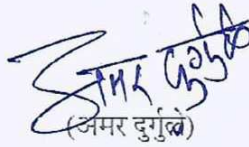 अमर दुर्गुळे
(अमर दुर्गुळे)